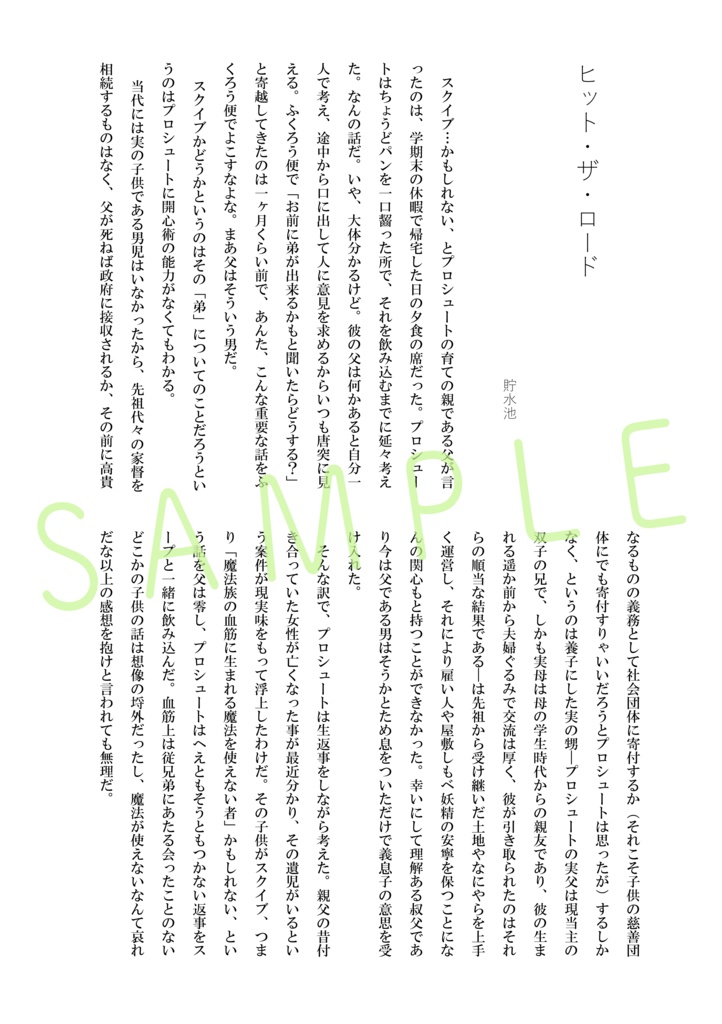 ヒット・ザ・ロード
貯水池
スクイブ…かもしれない、とプロシュートの育ての親である父が言
ったのは、学期末の休暇で帰宅した日の夕食の席だった。プロシュー
トはちょうどパンを一口齧った所で、それを飲み込むまでに延々考え
た。なんの話だ。いや、大体分かるけど。彼の父は何かあると自分一
人で考え、途中から口に出して人に意見を求めるからいつも唐突に見
える。ふくろう便で「お前に弟が出来るかもと聞いたらどうする?」
と寄越してきたのは一ヶ月くらい前で、あんた、こんな重要な話をふ
くろう便でよこすなよな。まあ父はそういう男だ。
スクイブかどうかというのはその「弟」についてのことだろうとい
うのはプロシュートに開心術の能力がなくてもわかる。
当代には実の子供である男児はいなかったから、先祖代々の家督を
相続するものはなく、父が死ねば政府に接収されるか、その前に高貴
なるものの義務として社会団体に寄付するか(それこそ子供の慈善団
体にでも寄付すりゃいいだろうとプロシュートは思ったが)するしか
なく、というのは養子にした実の甥―プロシュートの実父は現当主の
双子の兄で、しかも実母は母の学生時代からの親友であり、彼の生ま
れる遥か前から夫婦ぐるみで交流は厚く、彼が引き取られたのはそれ
らの順当な結果である―は先祖から受け継いだ土地やなにやらを上手
く運営し、それにより雇い人や屋敷しもべ妖精の安寧を保つことにな
んの関心もと持つことができなかった。幸いにして理解ある叔父であ
り今は父である男はそうかとため息をついただけで義息子の意思を受
け入れた。
そんな訳で、プロシュートは生返事をしながら考えた。親父の昔付
き合っていた女性が亡くなった事が最近分かり、その遺児がいるとい
う案件が現実味をもって浮上したわけだ。その子供がスクイブ、つま
り「魔法族の血筋に生まれる魔法を使えない者」かもしれない、とい
う話を父は零し、プロシュートはへえともそうともつかない返事をス
ープと一緒に飲み込んだ。血筋上は従兄弟にあたる会ったことのない
どこかの子供の話は想像の埒外だったし、魔法が使えないなんて哀れ
だな以上の感想を抱けと言われても無理だ。
SAMPLE